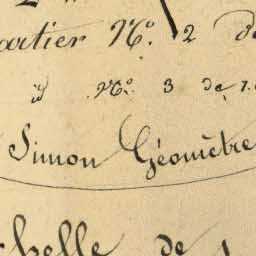 artier N.º 2 de
id N.º 3 de
Simon Géomètre
chelle de